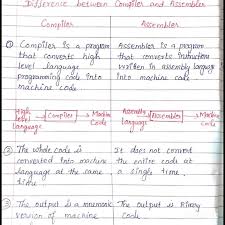 Difference between Compiler and Assembler
Compiler Assembler
① Compiler is a program Assembler is a program
that converts high that converts instructions
level language written in assembly language
programming code into into machine code.
machine code.
High level Language → Compiler → Machine Code Assembly Language → Assembler → Machine Code
② The whole code is It does not convert
converted into machine the entire code at
language at the same a single time.
time.
③ The output is a mnemonic The output is Binary
version of machine Code.